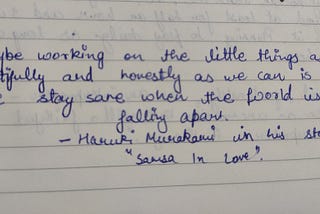 ybe working on the little things a
tifully and honestly as we can is
stay sane when the world is
falling apart.
– Haruki Murakami in his st
"Samsa In Love".